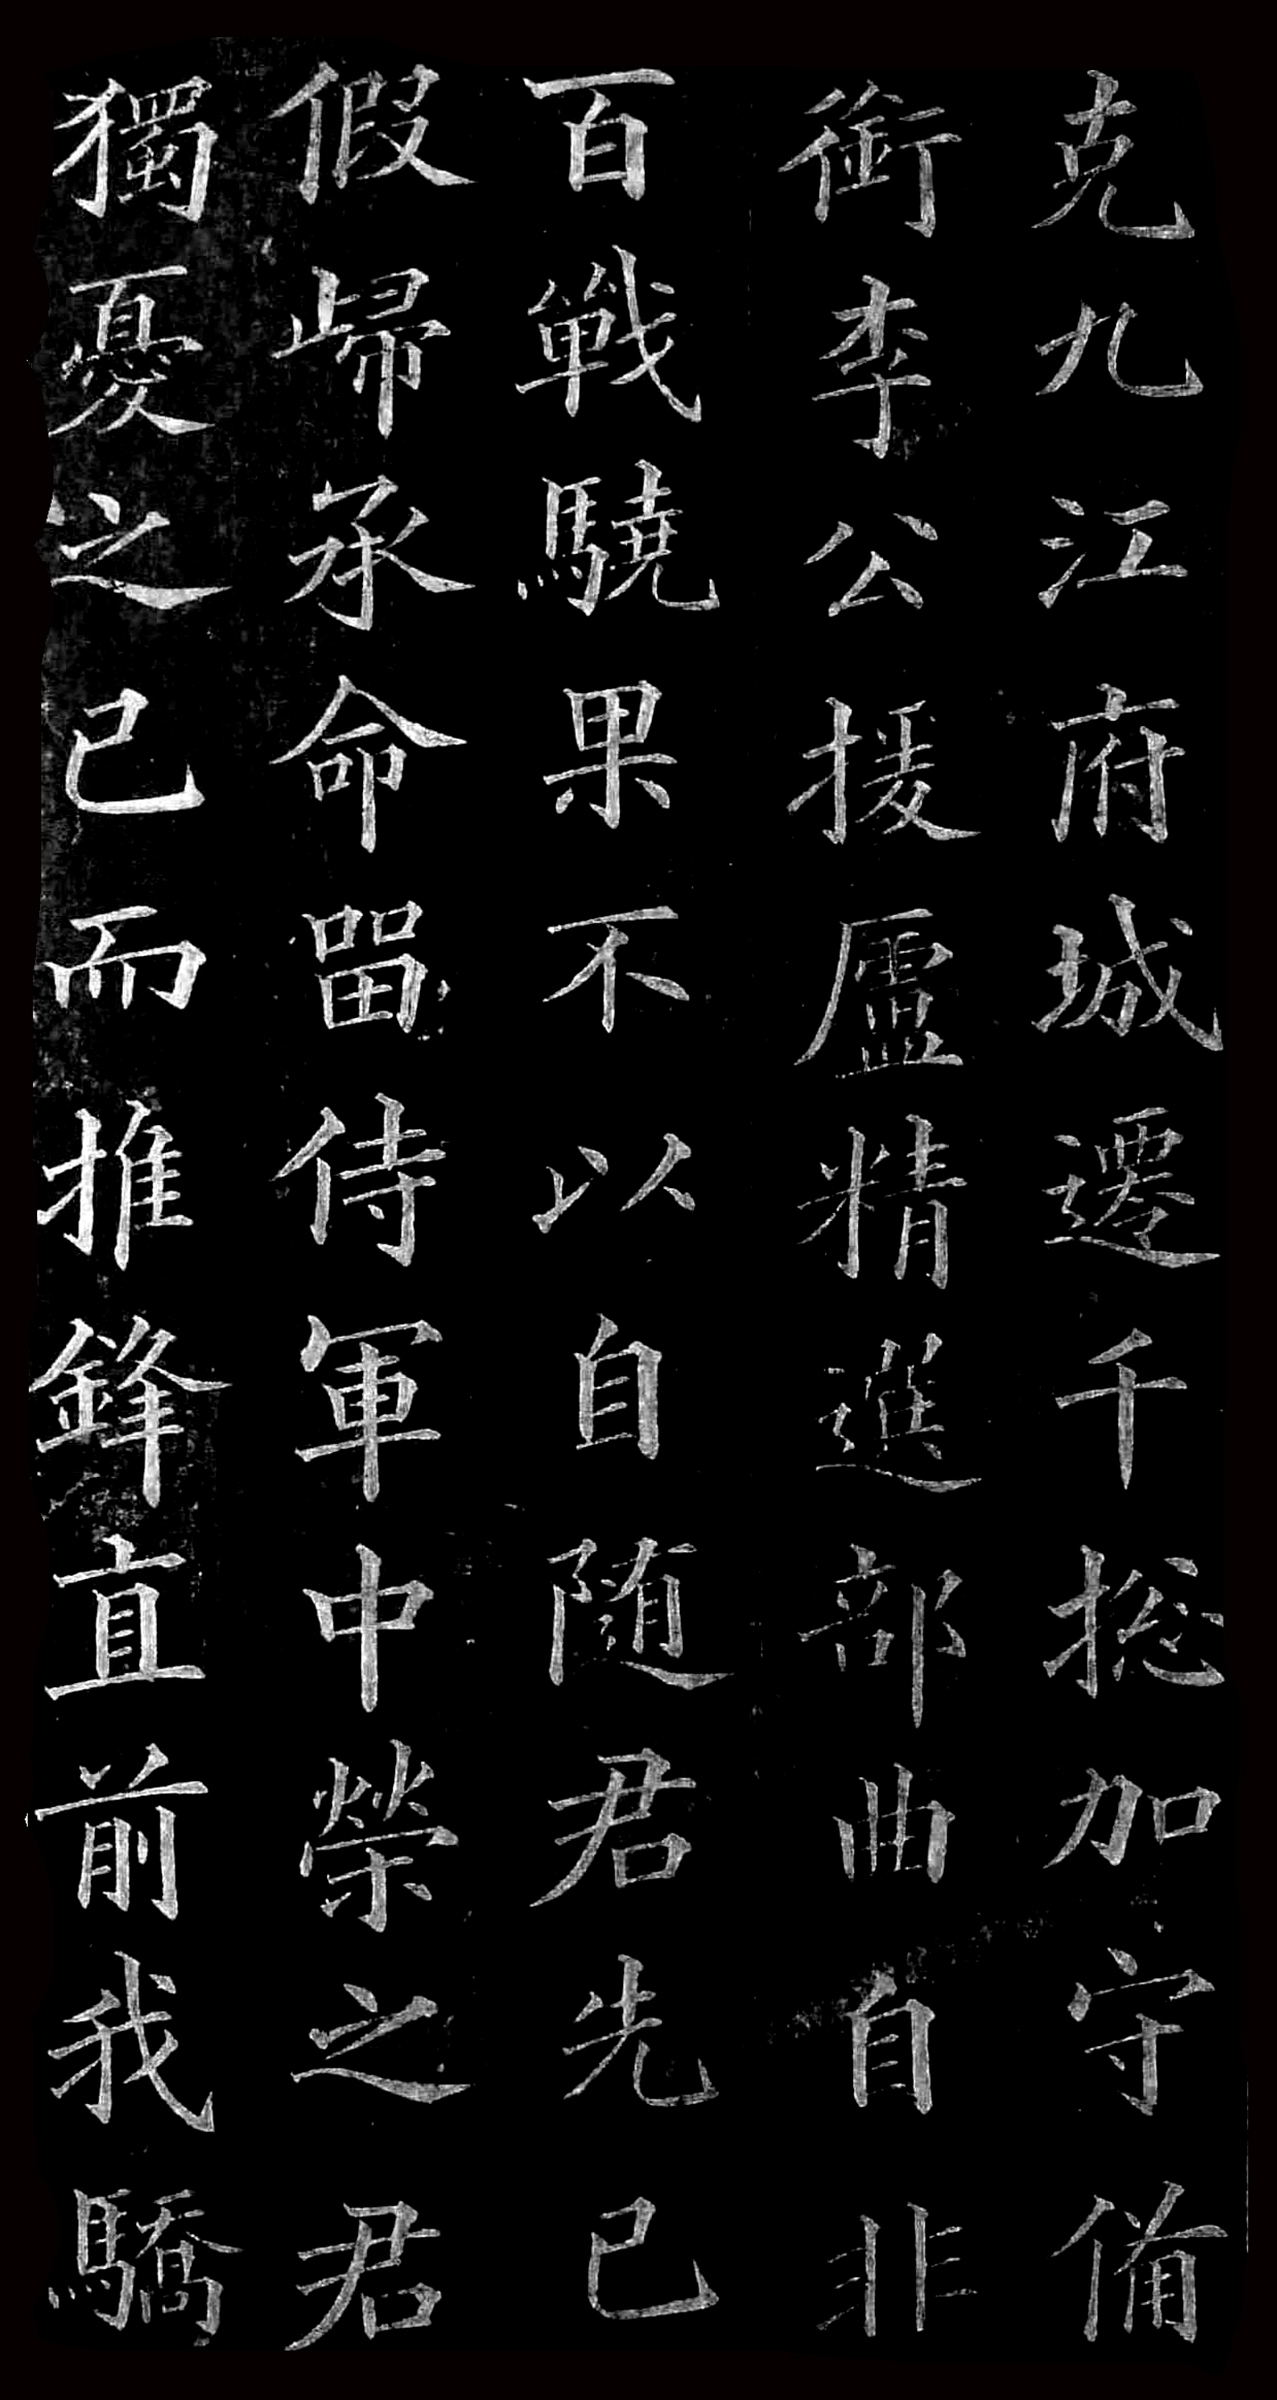 克九江府城遷千捴加守備
銜李公援廬精選部曲自非
百戰驍果不以自随君先已
假歸承命畱侍軍中榮之君
獨憂之已而推鋒直前我驕